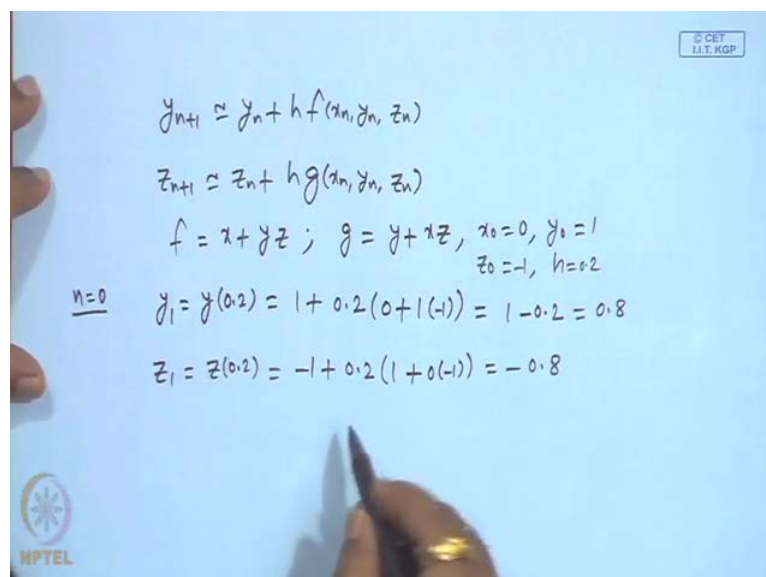 © CET
I.I.T. KGP
yₙ₊₁ ≃ yₙ + h f(xₙ, yₙ, zₙ)
zₙ₊₁ ≃ zₙ + h g(xₙ, yₙ, zₙ)
f = x + yz ; g = y + xz, x₀ = 0, y₀ = 1
z₀ = -1, h = 0.2
n=0 y₁ = y(0.2) = 1 + 0.2(0+1(-1)) = 1 - 0.2 = 0.8
z₁ = z(0.2) = -1 + 0.2(1+0(-1)) = -0.8
NPTEL